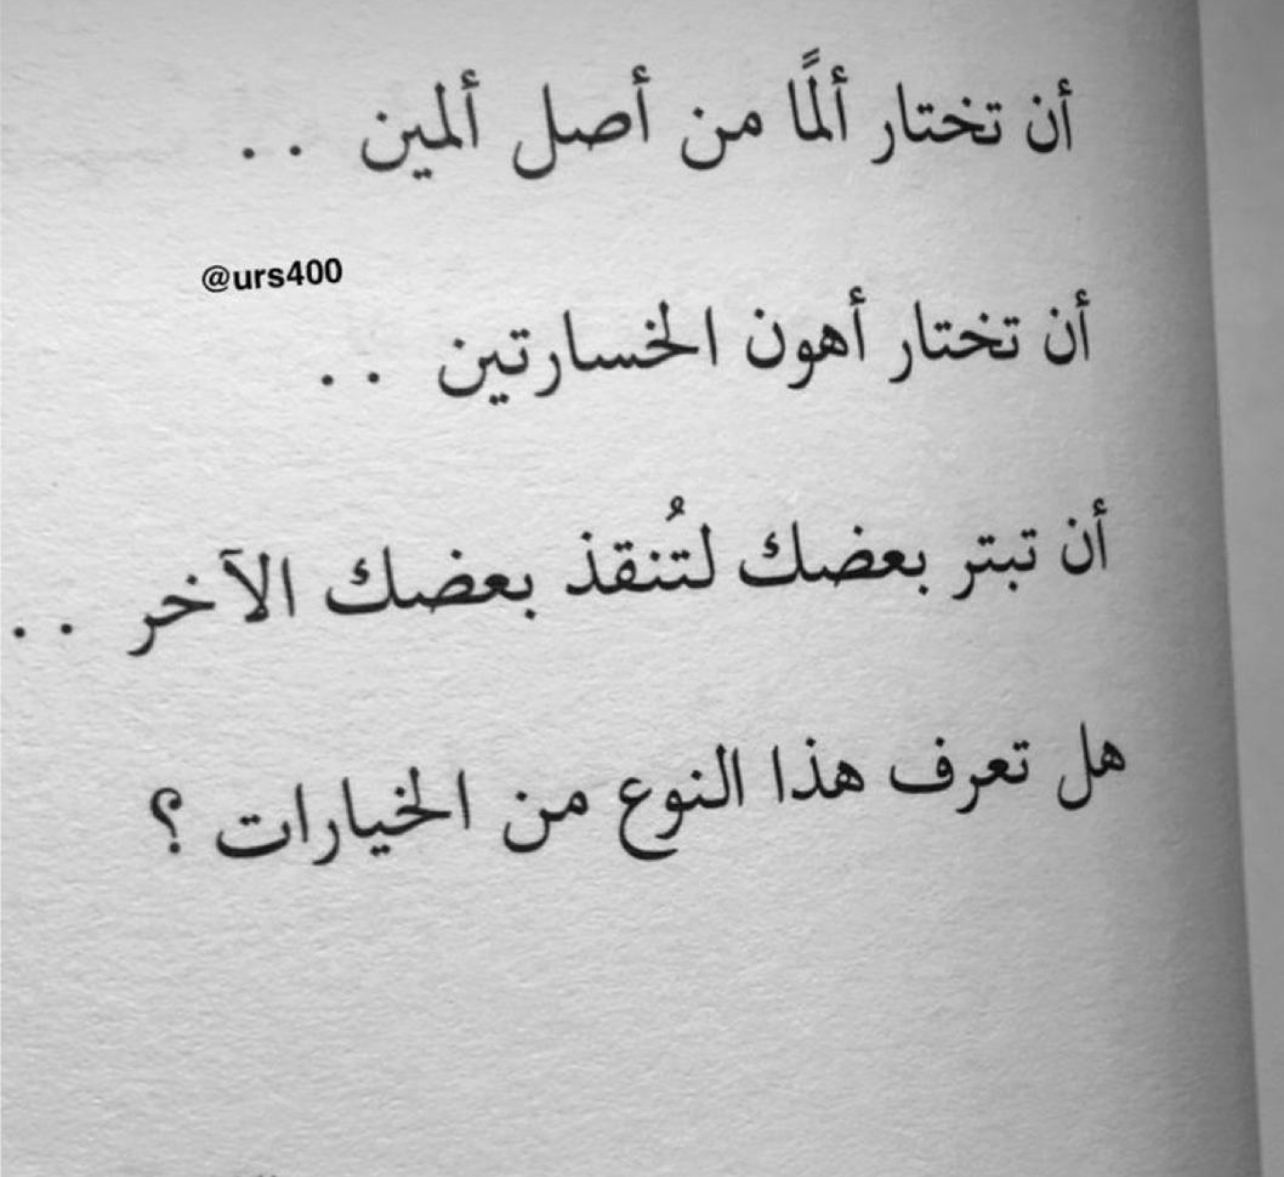 أن تختار ألمًا من أصل ألمين . .
@urs400
أن تختار أهون الخسارتين . .
أن تبتر بعضك لتُنقذ بعضك الآخر . .
هل تعرف هذا النوع من الخيارات ؟